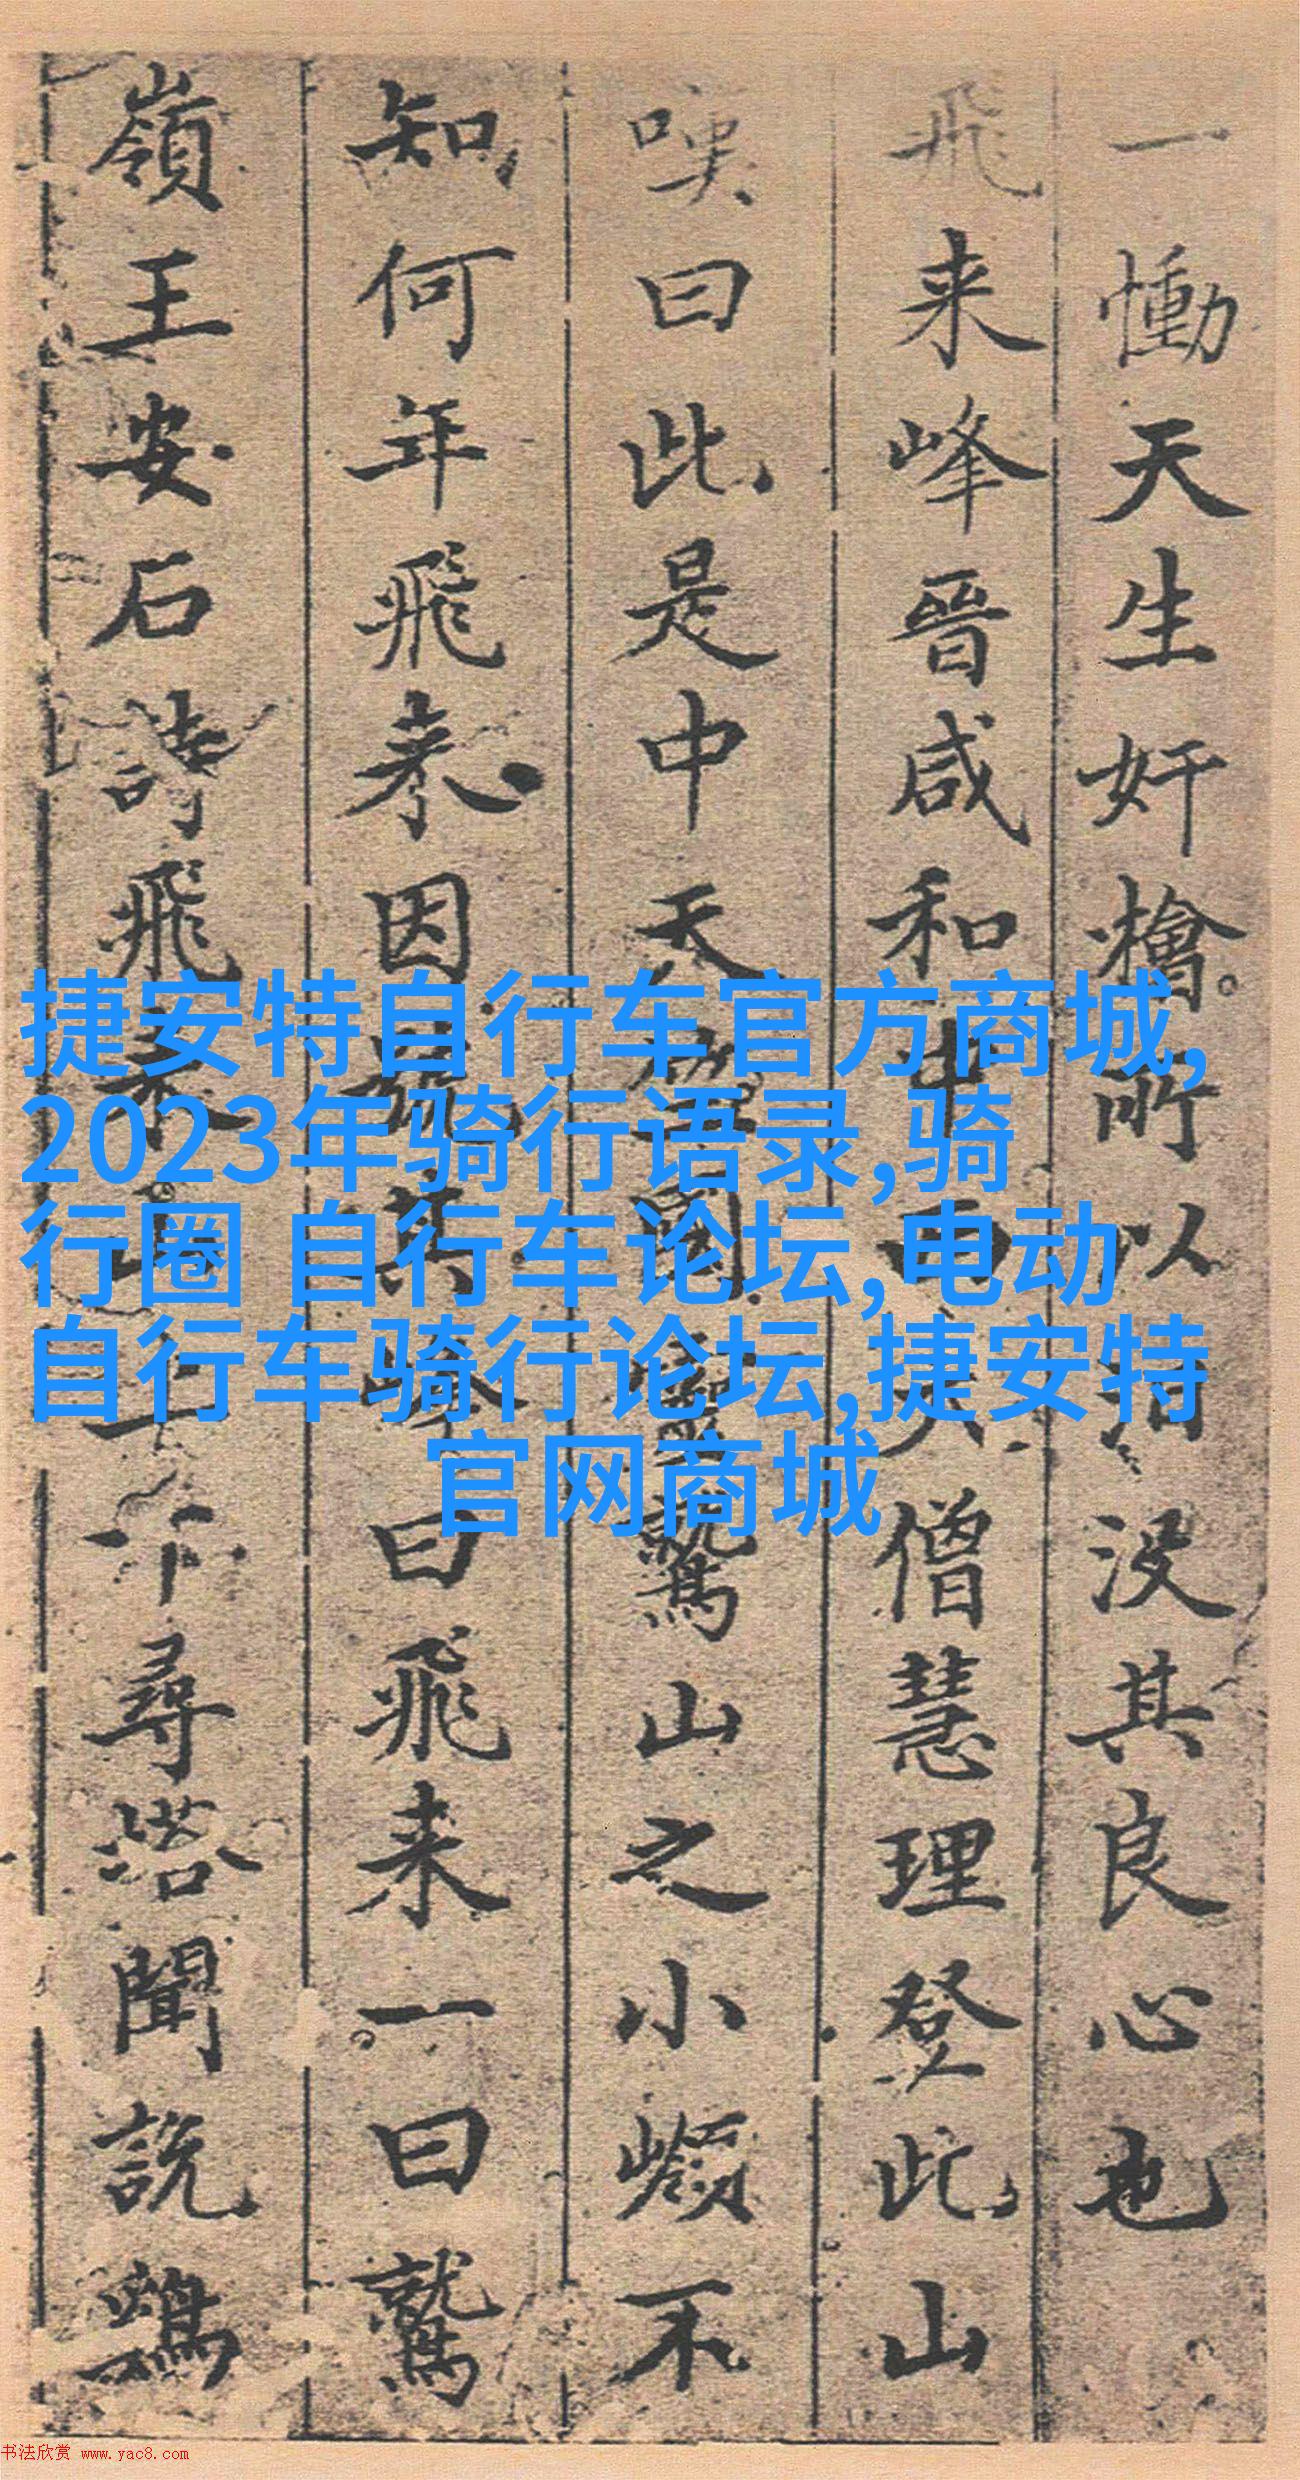 一慟天生奸檜所以没其良心也
飛来峰晉咸和中西天僧慧理登此山
嘆曰此是中天竺國靈鷲山之小嶺不
知何年飛来因號其峰曰飛来一曰鷲
嶺王安石詩飛来山上千尋塔聞説鷄
捷安特自行车官方商城,
2023年骑行语录,骑
行圈 自行车论坛,电动
自行车骑行论坛,捷安特
官网商城
书法欣赏 www.yac8.com